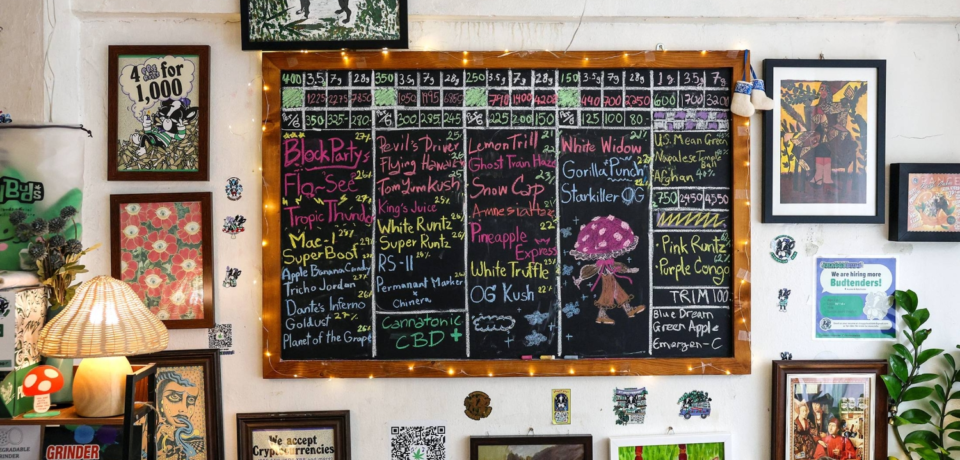 4 for
1,000
Buds
400 3.5 7g 28g
350 3.5g 7g 28g
250 3.5 7g 28g
150 3.5g 7g 28g
1g 3.5 7g
1225 2275 7850
1050 1945 6850
790 1400 4200
440 700 2250
600 1700 3200
350 325- 280
300 285 245
225 200 150
125 100 80-
Block Party
Fla-See
Tropic Thunder
Mac-1
SuperBoof
Apple Banana Candy
Tricho Jordan
Dante's Inferno
Goldust 27%
Planet of the Grape
Devil's Driver
Flying Hawaii
Tom Yum Kush
King's Juice
White Runtz
Super Runtz
RS-11
Permanant Marker
x
Chimera
Cannatonic
CBD +
Lemon Trill
Ghost Train Haze
Snow Cap
Amnesia Haze
Pineapple
Express
White Truffle
OG Kush
White Widow
Gorilla Punch
Starkiller OG
U.S. Mean Green
Napalese Temple
Ball
Afghan 40%
750 2450 4550
Pink Runtz
Purple Congo
TRIM 100
Blue Dream
Green Apple
Emergen-C
We are hiring more
Budtenders!
GRINDER
We accept
CryptoCurrencies